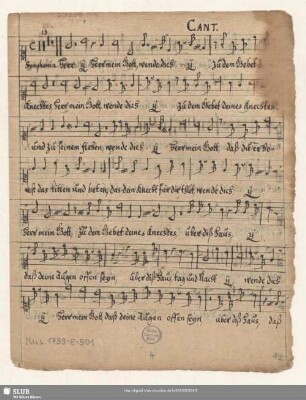 CANT.
Symphonia Herr ij Herr mein Gott, wende dich ij Zu dem Gebet
Knechtes Herr mein Gott, wende dich ij Zu dem Gebet deines Knechtes
und zu seinem flehen, wende dich ij Herr mein Gott, daß du er
das bitten und beten, das dein Knecht für dir thut wende dich ij
Herr mein Gott, Zu dem Gebet deines Knechtes über diß Hauß, ij
daß deine Augen offen seyn, über diß Hauß tag und Nacht ij wende dich
ij Herr mein Gott daß deine Augen offen seyn über diß Hauß, daß
Mus. 1739-E-501
4
SLUB